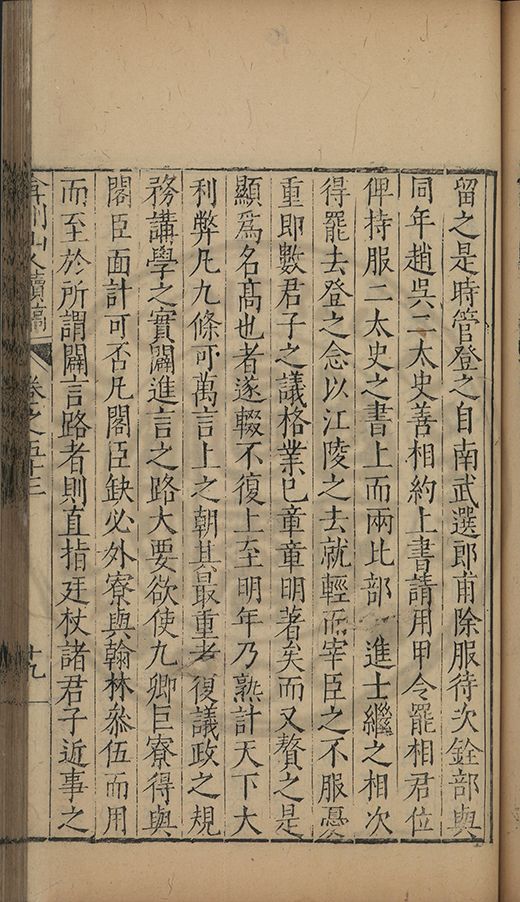 留之是時管登之自南武選郎甫除服待次銓部與
同年趙吳二太史善相約上書請用甲令罷相君位
俾持服二太史之書上而兩比部一進士繼之相次
得罷去登之念以江陵之去就輕而宰臣之不服憂
重即數君子之議格業已章章明著矣而又贅之是
顯爲名高也者遂輟不復上至明年乃熟計天下大
利弊凡九條可萬言上之朝其最重者復議政之規
務講學之實闢進言之路大要欲使九卿巨寮得與
閣臣面計可否凡閣臣缺必外寮與翰林叅伍而用
而至於所謂闢言路者則直指廷杖諸君子近事之
弇州山人續稿 卷之五十三 十九